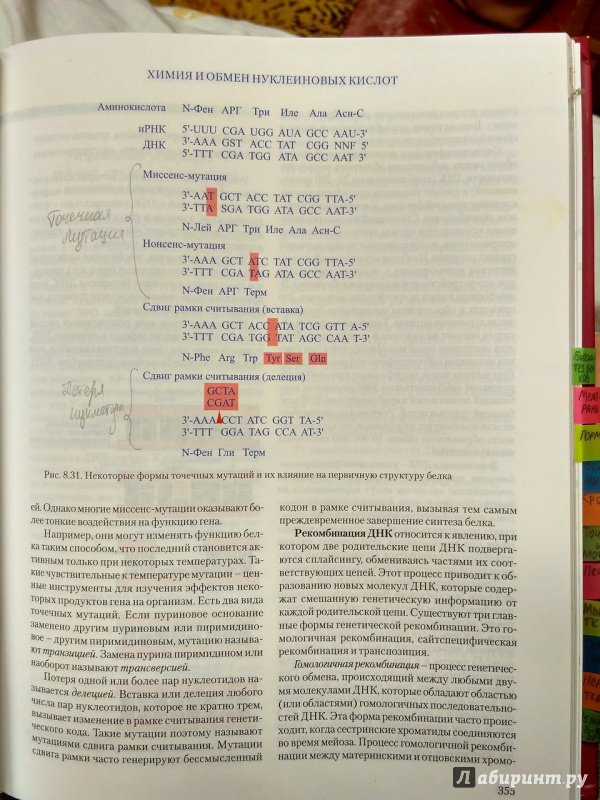 ХИМИЯ И ОБМЕН НУКЛЕИНОВЫХ КИСЛОТ
Аминокислота N-Фен АРГ Три Иле Ала Асн-С
иРНК 5'-UUU CGA UGG AUA GCC AAU-3'
ДНК 3'-AAA GST ACC TAT CGG NNF 5'
5'-TTT CGA TGG ATA GCC AAT 3'
Миссенс-мутация
3'-AAT GCT ACC TAT CGG TTA-5'
3'-TTA SGA TGG ATA GCC AAT-3'
N-Лей АРГ Три Иле Ала Асн-С
Точечная мутация
Нонсенс-мутация
3'-AAA GCT ATC TAT CGG TTA-5'
3'-TTT CGA TAG ATA GCC AAT-3'
N-Фен АРГ Терм
Сдвиг рамки считывания (вставка)
3'-AAA GCT ACC ATA TCG GTT A-5'
3'-TTT CGA TGG TAT AGC CAA T-3'
N-Phe Arg Trp Tyr Ser Gln
Сдвиг рамки считывания (делеция)
Потеря
GCTA
CGAT
3'-AAA CCT ATC GGT TA-5'
3'-TTT GGA TAG CCA AT-3'
N-Фен Гли Терм
Рис. 8.31. Некоторые формы точечных мутаций и их влияние на первичную структуру белка
ей. Однако многие миссенс-мутации оказывают бо-
лее тонкие воздействия на функцию гена.
Например, они могут изменять функцию бел-
ка таким способом, что последний становится ак-
тивным только при некоторых температурах. Та-
кие чувствительные к температуре мутации – цен-
ные инструменты для изучения эффектов неко-
торых продуктов гена на организм. Есть два вида
точечных мутаций. Если пуриновое основание
заменено другим пуриновым или пиримидино-
вое – другим пиримидиновым, мутацию называ-
ют транзицией. Замена пурина пиримидином или
наоборот называют трансверсией.
Потеря одной или более пар нуклеотидов на-
зывается делецией. Вставка или делеция любого
числа пар нуклеотидов, которое не кратно трем,
вызывает изменение в рамке считывания генети-
ческого кода. Такие мутации поэтому называют
мутациями сдвига рамки считывания. Мутации
сдвига рамки часто генерируют бессмысленный
кодон в рамке считывания, вызывая тем самым
преждевременное завершение синтеза белка.
Рекомбинация ДНК относится к явлению, при
котором две родительские цепи ДНК подверга-
ются сплайсингу, обмениваясь частями их соот-
ветствующих цепей. Этот процесс приводит к об-
разованию новых молекул ДНК, которые содер-
жат смешанную генетическую информацию от
каждой родительской цепи. Существуют три глав-
ные формы генетической рекомбинации. Это го-
мологичная рекомбинация, сайтспецифическая
рекомбинация и транспозиция.
Гомологичная рекомбинация – процесс генетичес-
кого обмена, происходящий между любыми дву-
мя молекулами ДНК, которые обладают областью
(или областями) гомологичных последовательно-
стей ДНК. Эта форма рекомбинации часто проис-
ходит, когда сестринские хроматиды соединяются
во время мейоза. Процесс гомологичной рекомби-
нации между материнскими и отцовскими хромо-
355
Лабиринт.ру